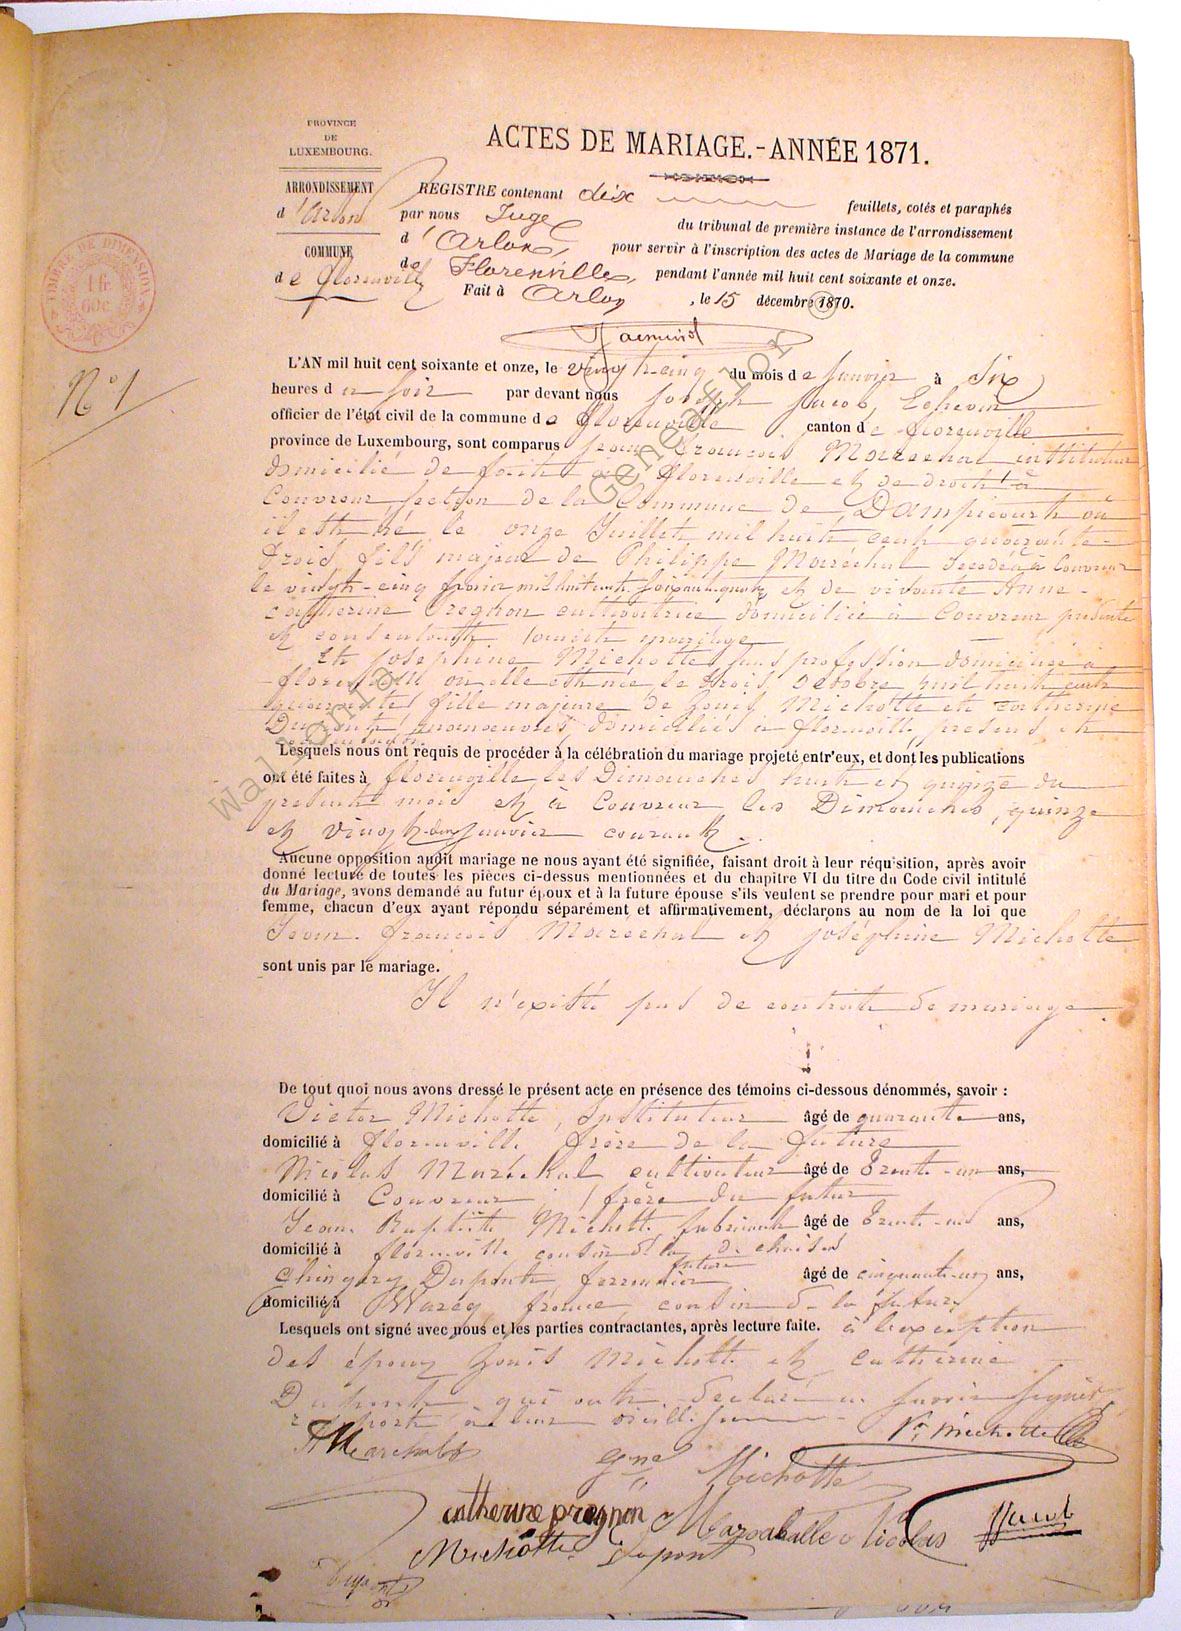 PROVINCE
DE
LUXEMBOURG.
ARRONDISSEMENT
d'Arlon
COMMUNE
de florenville
TIMBRE DE DIMENSION
1 fr
60 c
N° 1
ACTES DE MARIAGE.-ANNÉE 1871.
REGISTRE contenant dix feuillets, cotés et paraphés
par nous Juge du tribunal de première instance de l'arrondissement
d'Arlon, pour servir à l'inscription des actes de Mariage de la commune
de Florenville, pendant l'année mil huit cent soixante et onze.
Fait à Arlon, le 15 décembre 1870.
L'AN mil huit cent soixante et onze, le vingt-cinq du mois de Janvier à Six
heures du soir par devant nous Joseph Jacob, Echevin
officier de l'état civil de la commune de florenville canton de florenville
province de Luxembourg, sont comparus Jean François Maréchal instituteur
domicilié de fait à florenville et de droit à
Couvreux section de la Commune de Dampicourt où
il est né le onze Juillet mil huit cent quarante-
trois, fils majeur de Philippe Maréchal décédé à Couvreux
le vingt-cinq mil huit cent soixante quatre et de vivante Anne-
catherine Pregnon cultivatrice domiciliée à Couvreux présente
et consentante au dit mariage
Et Joséphine Michotte sans profession domiciliée à
florenville où elle est née le trois Octobre mil huit cent
quarante fille majeure de Louis Michotte et catherine
Dupont, manoeuvres domiciliés à florenville présens et
Lesquels nous ont requis de procéder à la célébration du mariage projeté entr'eux, et dont les publications
ont été faites à florenville les Dimanches huit et quinze du
présent mois et à Couvreux les Dimanches, quinze
et vingt-deux Janvier courant.
Aucune opposition audit mariage ne nous ayant été signifiée, faisant droit à leur réquisition, après avoir
donné lecture de toutes les pièces ci-dessus mentionnées et du chapitre VI du titre du Code civil intitulé
du Mariage, avons demandé au futur époux et à la future épouse s'ils veulent se prendre pour mari et pour
femme, chacun d'eux ayant répondu séparément et affirmativement, déclarons au nom de la loi que
Jean-françois Maréchal et Joséphine Michotte
sont unis par le mariage.
Il n'existe pas de contrat de mariage.
De tout quoi nous avons dressé le présent acte en présence des témoins ci-dessous dénommés, savoir :
Victor Michotte, Instituteur âgé de quarante ans,
domicilié à florenville frère de la future
Nicolas Maréchal cultivateur âgé de Trente-un ans,
domicilié à Couvreux, frère du futur
Jean Baptiste Michotte fabricant âgé de Trente-un ans,
domicilié à florenville cousin de la future de chaises
Dupont ferronnier âgé de cinquante-un ans,
domicilié à Warcq, france cousin de la future
Lesquels ont signé avec nous et les parties contractantes, après lecture faite. à l'exception
des époux Louis Michotte et catherine
Dupont qui ont déclaré ne savoir signer
rapport à leur vieillesse
Marechal
Vr. Michotte
Michotte
catherine pregnon
Marechalle Nicolas
JJacob
Michotte
Dupont
Wallonia Geneaflor